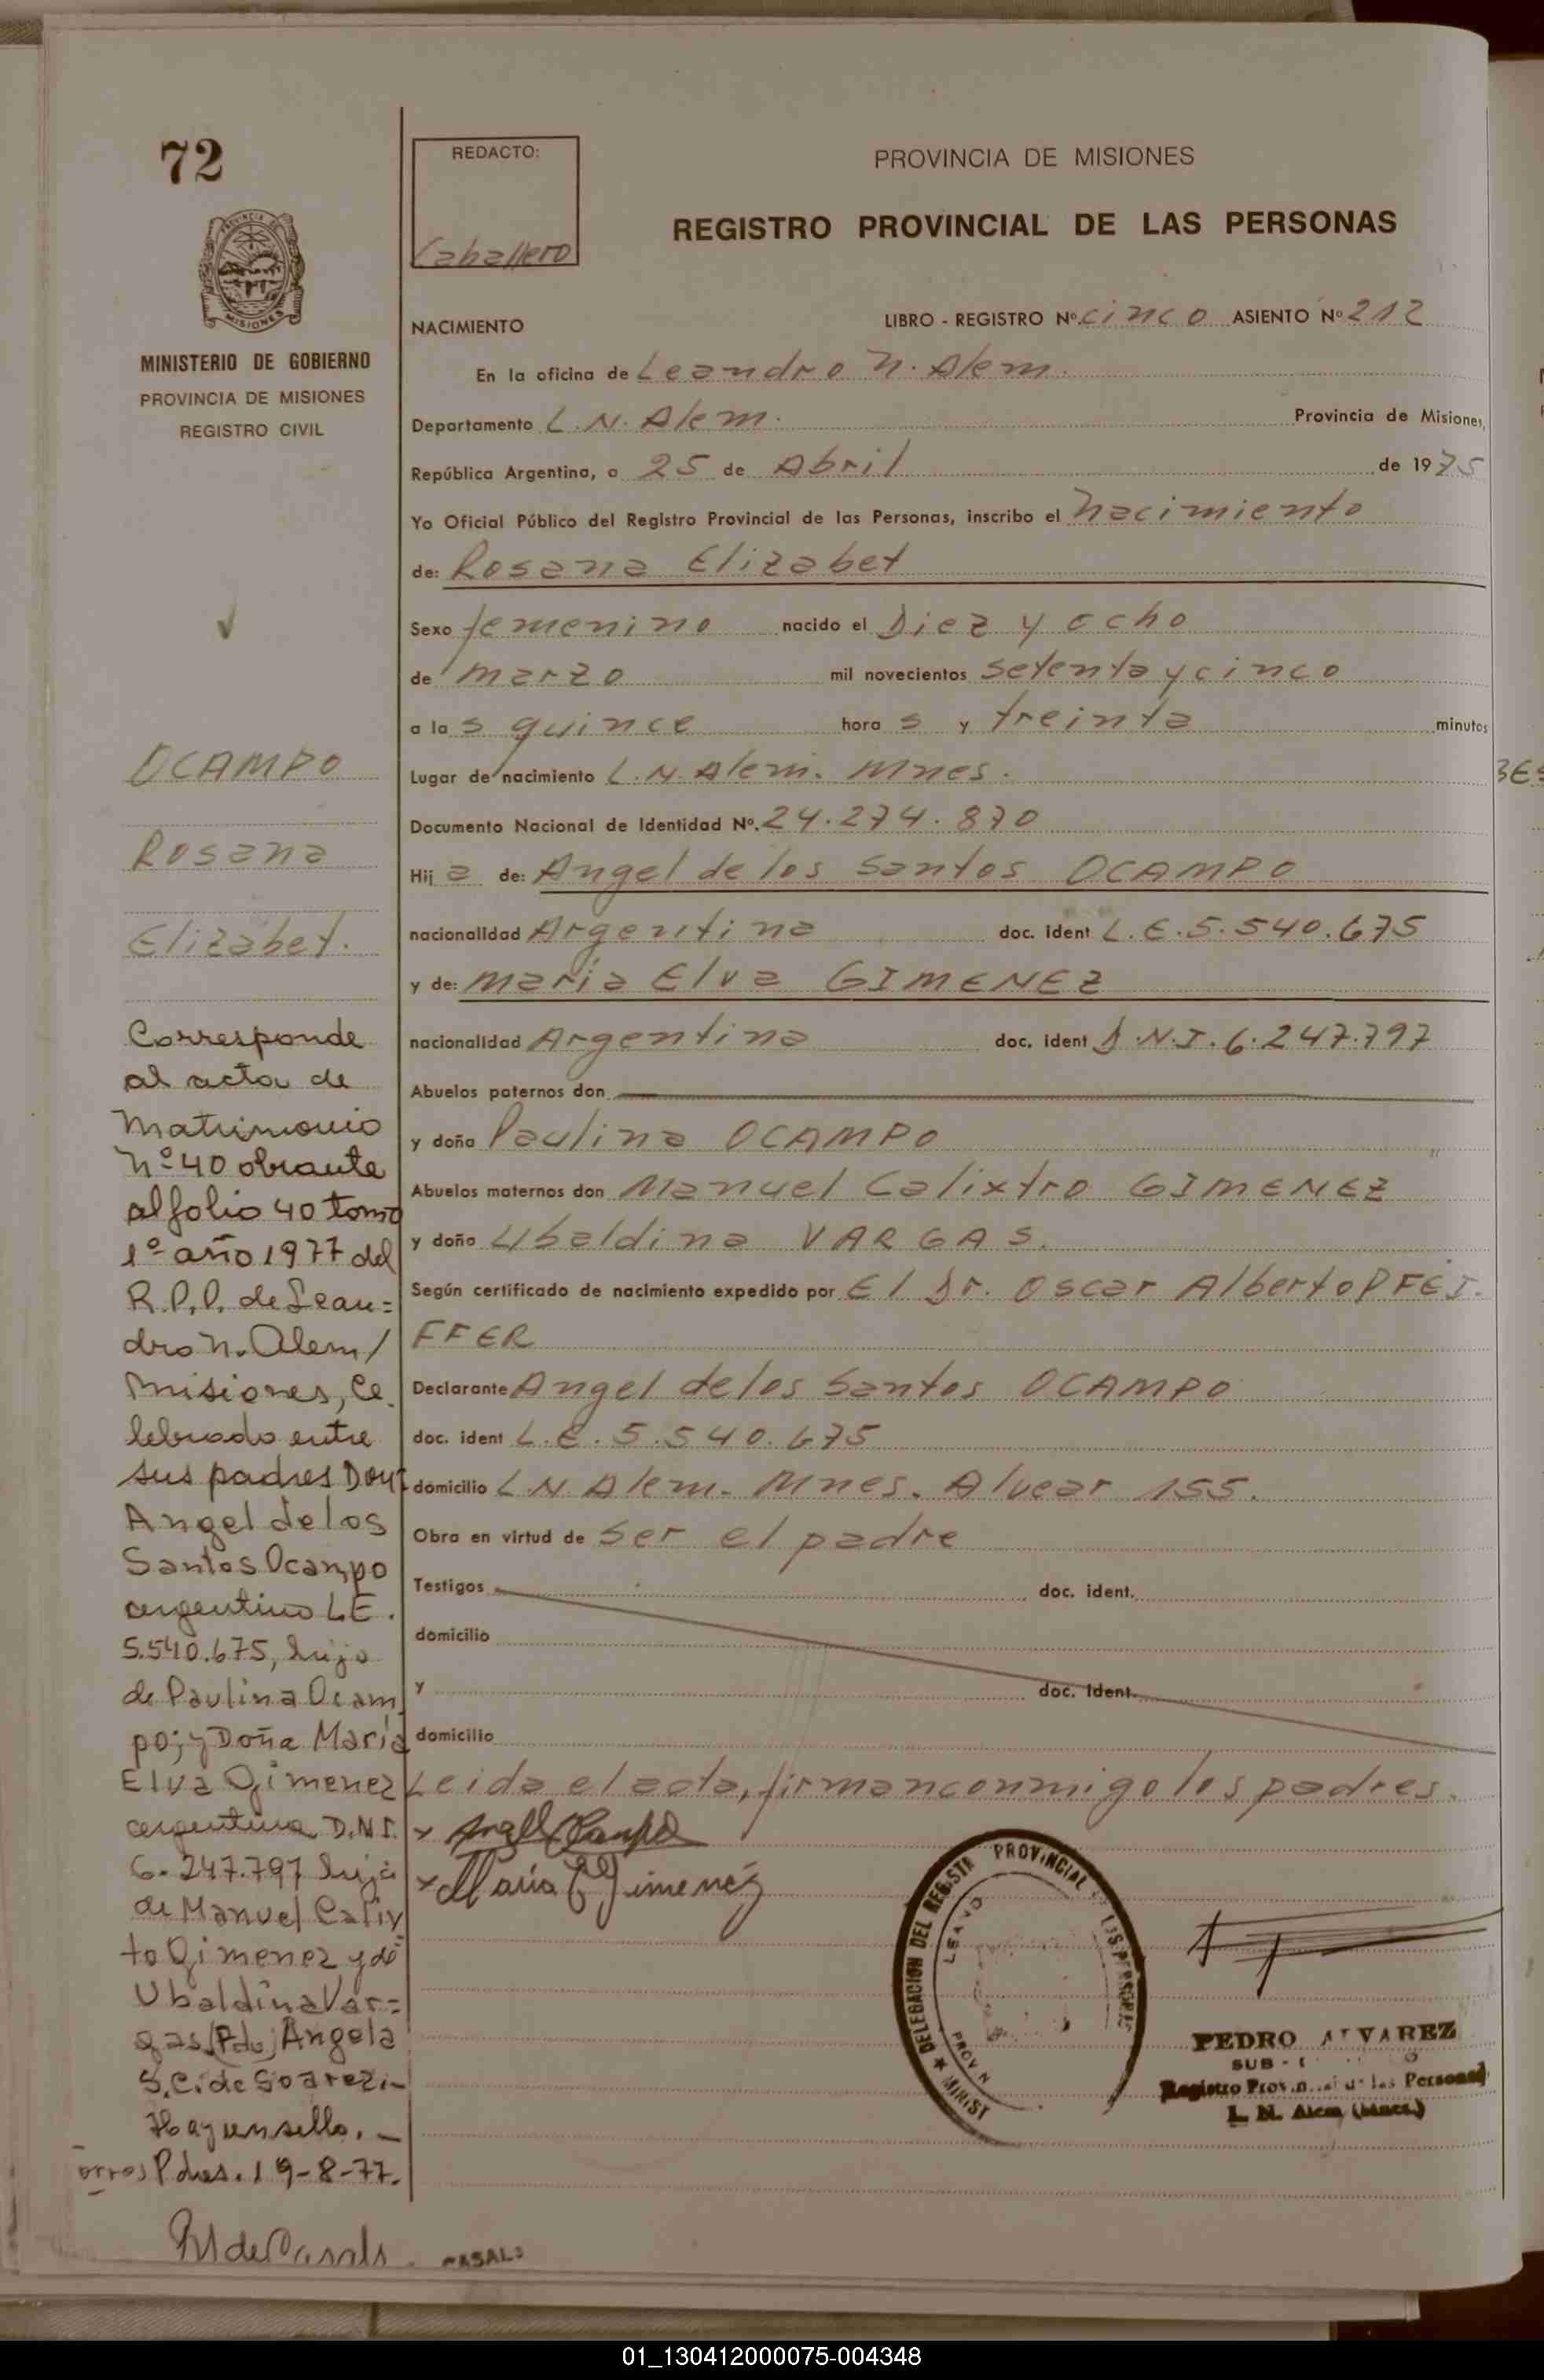 72
PROVINCIA DE
MISIONES
MINISTERIO DE GOBIERNO
PROVINCIA DE MISIONES
REGISTRO CIVIL
OCAMPO
Rosana
Elizabet.
Corresponde
al acta de
Matrimonio
Nº 40 obrante
al folio 40 tomo
1º año 1977 del
R.P.P. de Lean=
dro N. Alem/
Misiones, Ce
lebrado entre
sus padres Don:
Angel de los
Santos Ocampo
argentino L.E.
5.540.675, hijo
de Paulina Ocam
po; y Doña María
Elva Gimenez
argentina D.N.I.
6.247.797 hija
de Manuel Calix
to Gimenez y de
Ubaldina Var=
gas. (Fdo) Angela
S.C. de Soarez.-
Hay un sello. -
Pdas. 19-8-77.
CASALS
REDACTO:
Caballero
PROVINCIA DE MISIONES
REGISTRO PROVINCIAL DE LAS PERSONAS
NACIMIENTO LIBRO - REGISTRO Nº cinco ASIENTO Nº 212
En la oficina de Leandro N. Alem.
Departamento L. N. Alem. Provincia de Misiones,
República Argentina, a 25 de Abril de 1975
Yo Oficial Público del Registro Provincial de las Personas, inscribo el nacimiento
de: Rosana Elizabet
Sexo femenino nacido el Diez y ocho
de marzo mil novecientos setenta y cinco
a las quince horas y treinta minutos
Lugar de nacimiento L. N. Alem. Mnes.
Documento Nacional de Identidad Nº. 24.274.870
Hija de: Angel de los Santos OCAMPO
nacionalidad Argentina doc. ident L.E. 5.540.675
y de: Maria Elva GIMENEZ
nacionalidad Argentina doc. ident D.N.I. 6.247.797
Abuelos paternos don
y doña Paulina OCAMPO
Abuelos maternos don Manuel Calixtro GIMENEZ
y doña Ubaldina VARGAS.
Según certificado de nacimiento expedido por El Dr. Oscar Alberto PFEI-
FFER
Declarante Angel de los Santos OCAMPO
doc. ident L.E. 5.540.675
domicilio L.N. Alem. Mnes. Alvear 155.
Obra en virtud de ser el padre
Testigos doc. ident.
domicilio
y doc. Ident.
domicilio
Leida el acta, firman conmigo los padres.
x Angel Ocampo
x María E Gimenéz
DELEGACION DEL REGISTR PROVINCIAL DE LAS PERSONAS
PEDRO ALVAREZ
SUB -
Registro Provincial de las Personas
L. N. Alem (Mnes.)
01_130412000075-004348